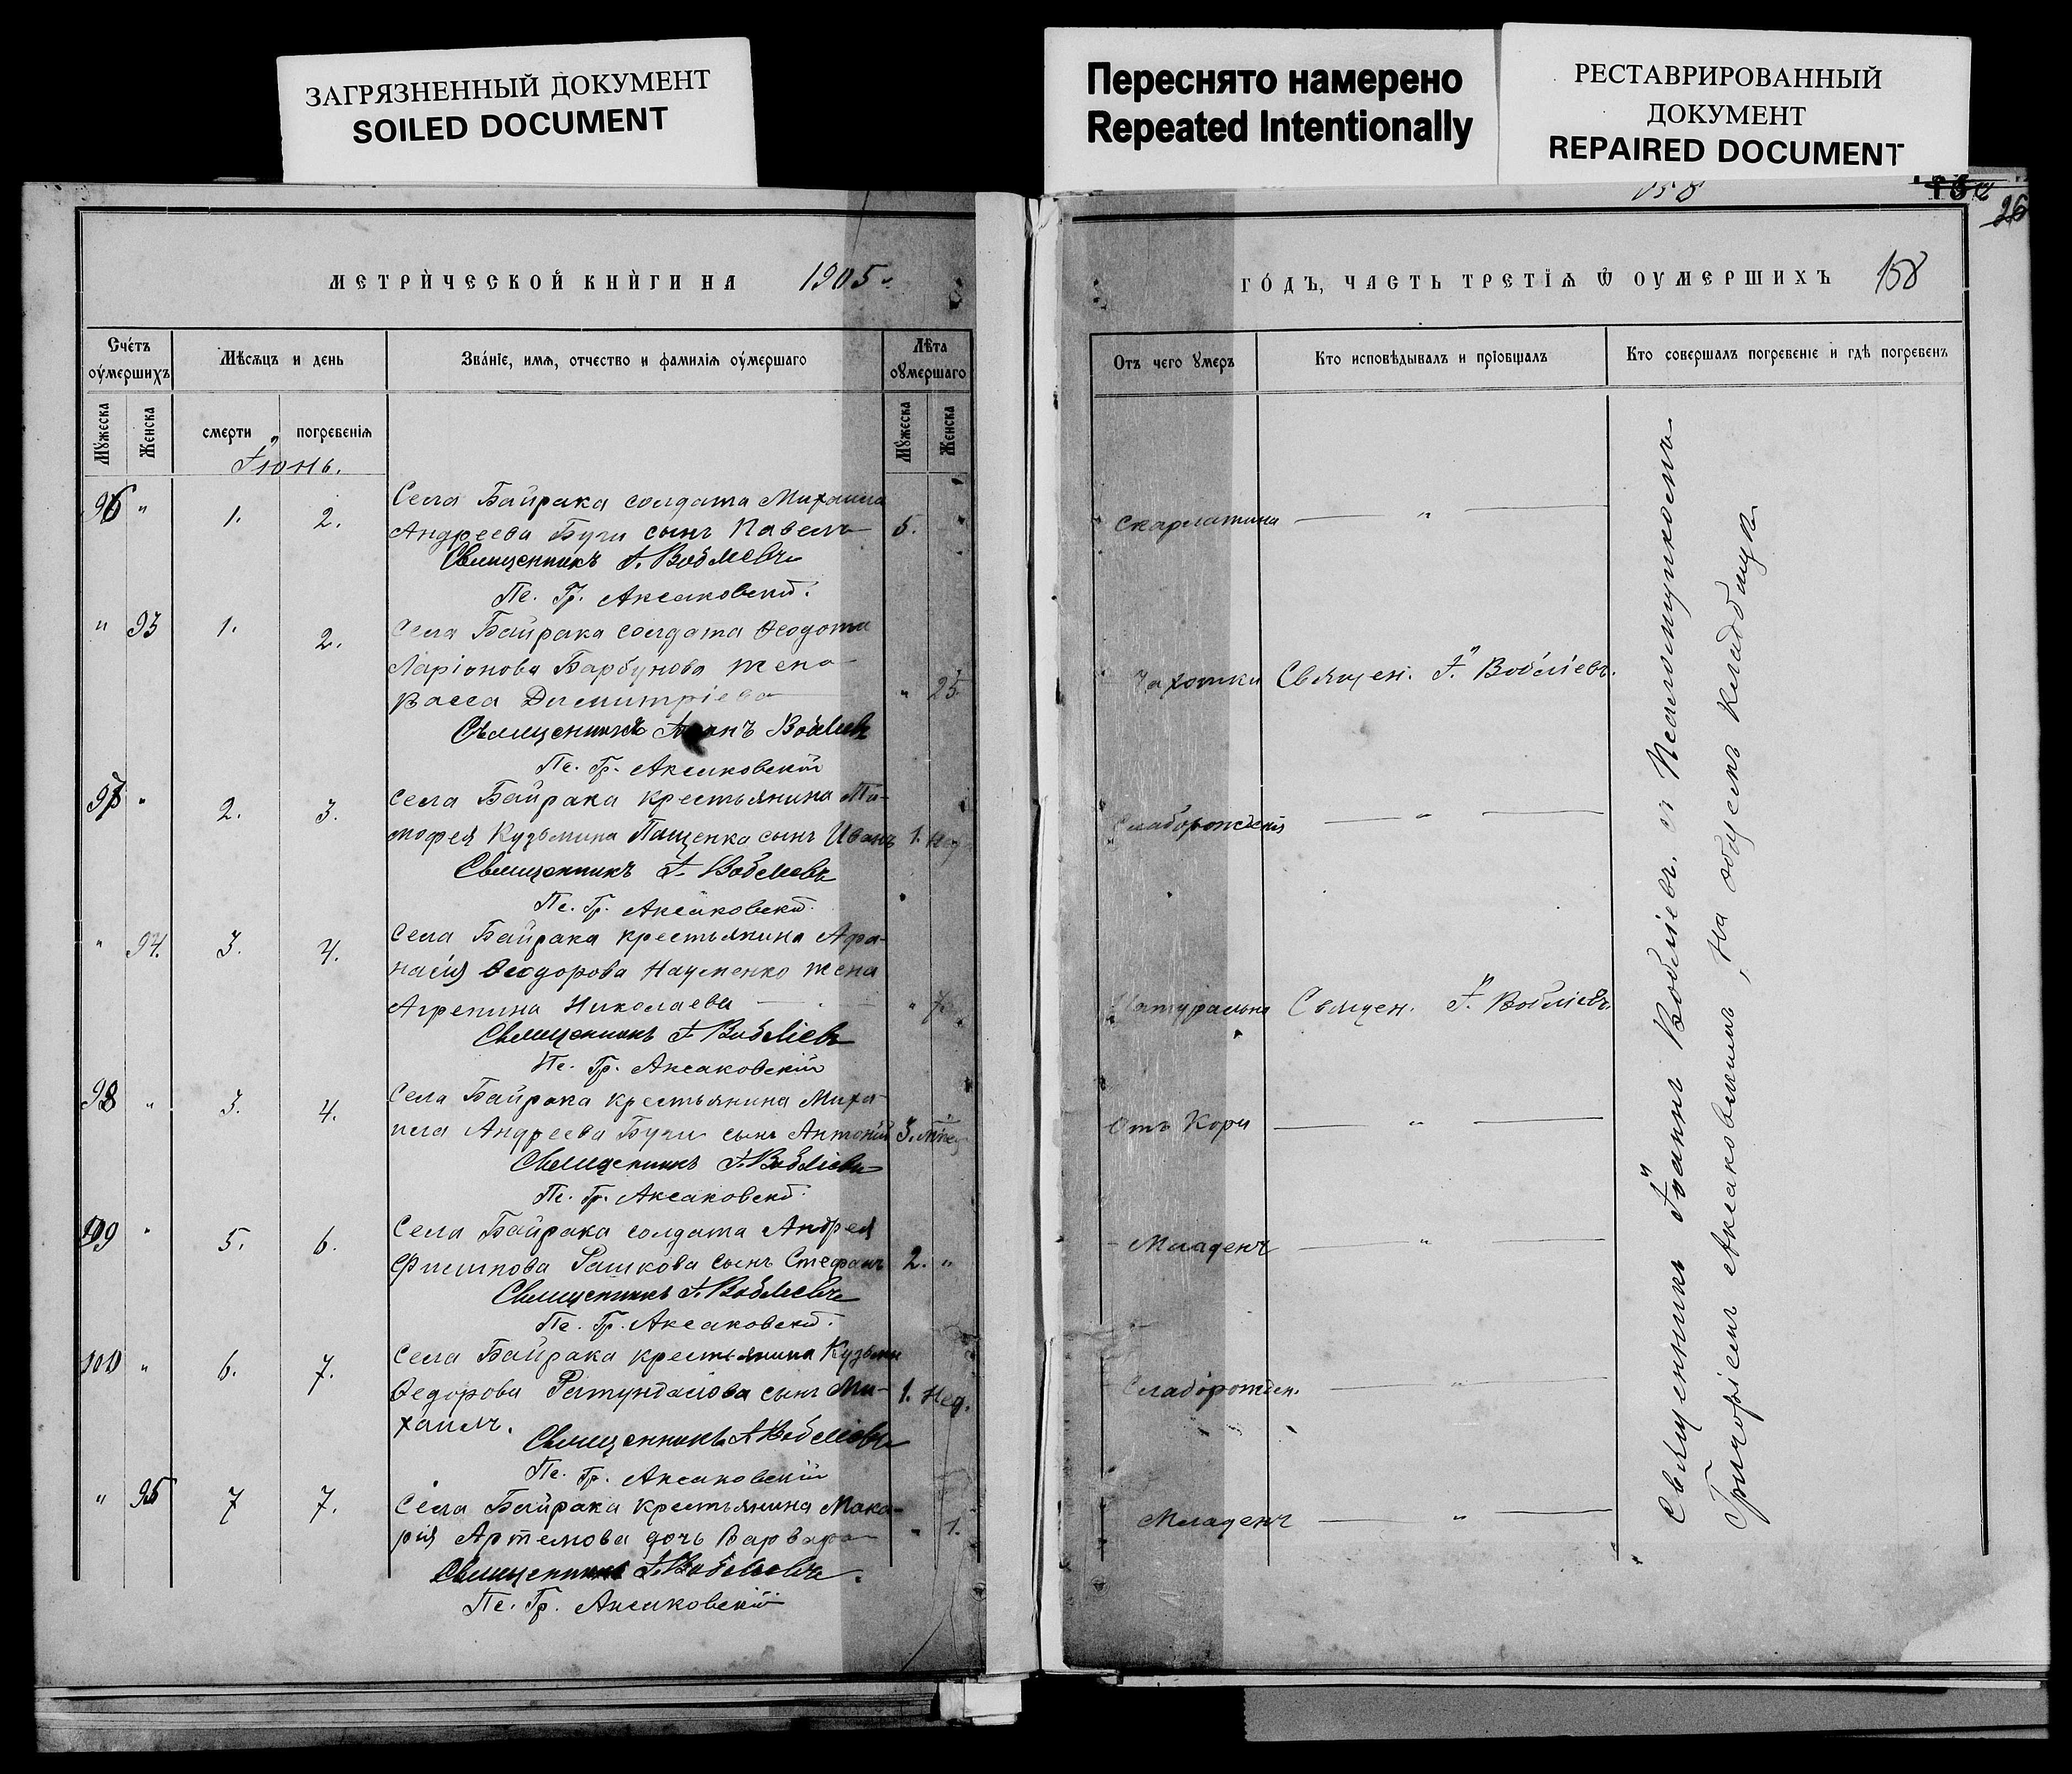 ЗАГРЯЗНЕННЫЙ ДОКУМЕНТ
SOILED DOCUMENT
Переснято намерено
Repeated Intentionally
РЕСТАВРИРОВАННЫЙ
ДОКУМЕНТ
REPAIRED DOCUMENT
26
МЕТРИЧЕСКОЙ КНИГИ НА 1905
Счетъ оумершихъ
Мѣсяцъ и день
Званіе, имя, отчество и фамилія оумершаго
Лѣта оумершаго
Мужеска
Женска
смерти
погребенія
Мужеска
Женска
Іюнь.
96 " 1. 2. Села Байрака солдата Михаила
Андреева Бучи сынъ Павелъ 5.
Священникъ І. Воблiевъ
Пс. Гр. Аксаковскій.
" 93 1. 2. Села Байрака солдата Ѳеодота
Ларіонова Барбунова жена
Васса Димитріева " 25.
Священникъ Іоаннъ Воблiевъ
Пс. Гр. Аксаковскій
97 " 2. 3. Села Байрака крестьянина Ти-
мофея Кузьмина Пащенка сынъ Иванъ 1. нед
Священникъ І. Воблiевъ
Пс. Гр. Аксаковскій.
" 94. 3. 4. Села Байрака крестьянина Афа-
насія Ѳеодорова Науменко жена
Агрепина Николаева "
Священникъ І Воблiевъ
Пс. Гр. Аксаковскій
98 " 3. 4. Села Байрака крестьянина Миха-
ила Андреева Бучи сынъ Антоній 3.
Священникъ І. Воблiевъ
Пс. Гр. Аксаковскій.
99 " 5. 6. Села Байрака солдата Андрея
Филипова Рашкова сынъ Стефанъ 2. "
Священникъ І. Воблiевъ
Пс. Гр. Аксаковскій.
100 " 6. 7. Села Байрака крестьянина Кузьмы
Ѳедорова сынъ Ми- 1. нед.
хаилъ.
Священникъ І Воблiевъ
Пс. Гр. Аксаковскій
" 95 7 7. Села Байрака крестьянина Мака-
рія Артемова дочь Варвара " 1.
Священникъ І. Воблiевъ.
Пс. Гр. Аксаковскій
ГОДЪ, ЧАСТЬ ТРЕТІЯ Ѿ ОУМЕРШИХЪ 158
Отъ чего умеръ
Кто исповѣдывалъ и пріобщалъ
Кто совершалъ погребеніе и гдѣ погребенъ
Скарлатина "
Чахотки Священ. І. Воблiевъ.
Слаборожденія "
Натурально Священ. І. Воблiевъ.
Отъ Кори "
Младенч "
Слаборожден. "
Младенч "
Священникъ Іоаннъ Воблiевъ. съ Псаломщикомъ
Григоріемъ Аксаковскимъ, На общемъ кладбищѣ